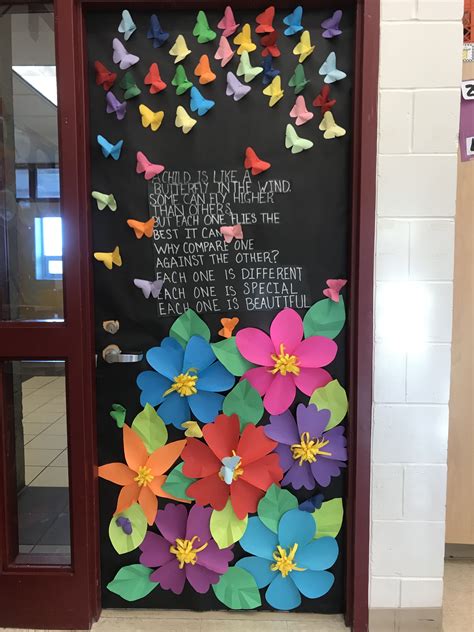 A CHILD IS LIKE A
BUTTERFLY IN THE WIND.
SOME CAN FLY HIGHER
THAN OTHERS
BUT EACH ONE FLIES THE
BEST IT CAN
WHY COMPARE ONE
AGAINST THE OTHER?
EACH ONE IS DIFFERENT
EACH ONE IS SPECIAL
EACH ONE IS BEAUTIFUL